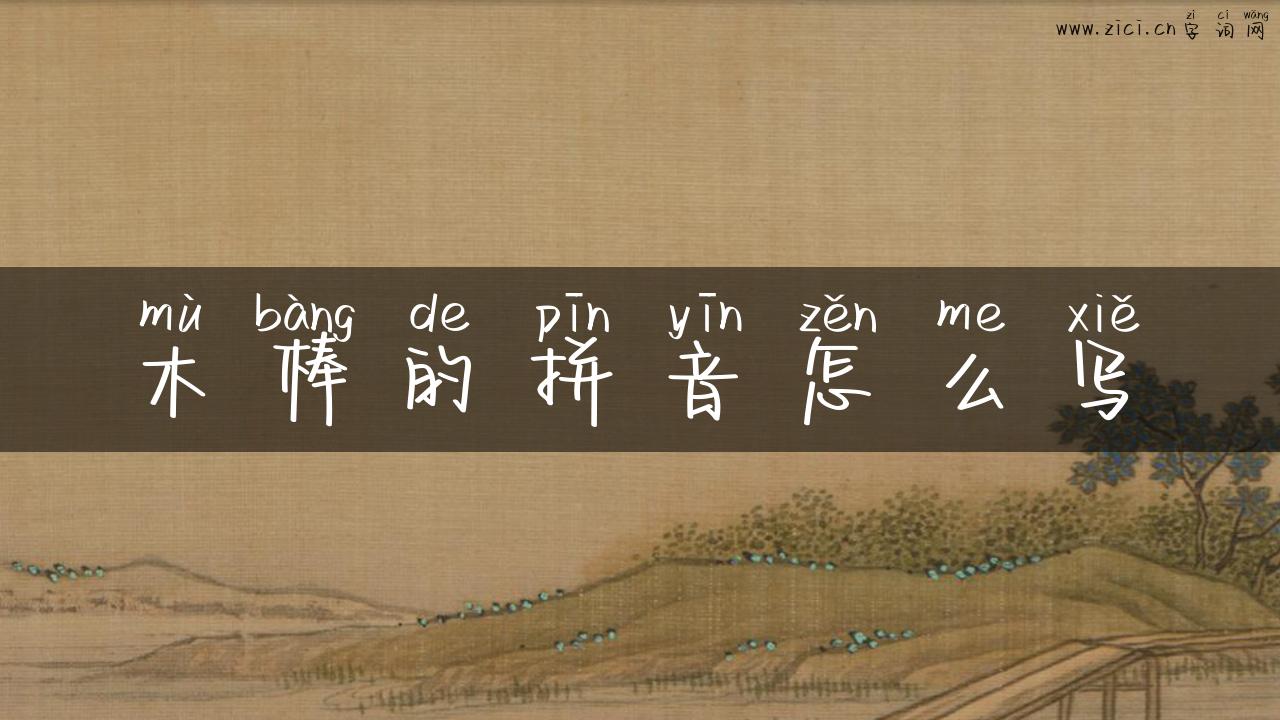 www.zici.cn
zì cí wǎng
字词网
mù bàng de pīn yīn zěn me xiě
木棒的拼音怎么写